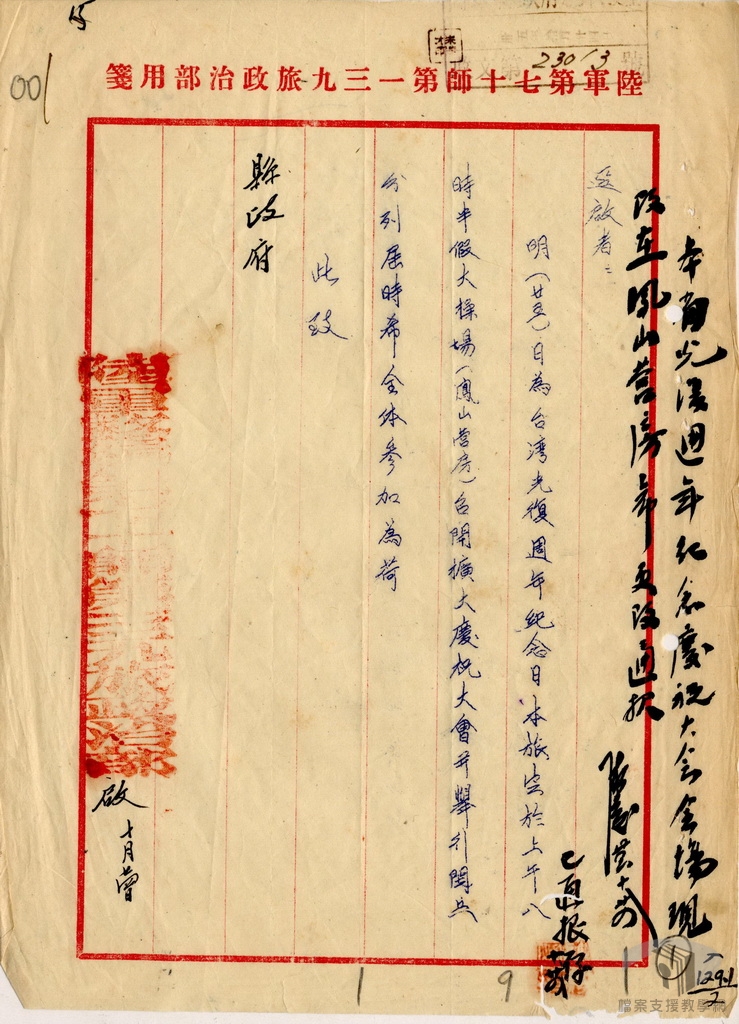 23013
001
陸軍第七十師第一三九旅政治部用箋
本省光復週年紀念慶祝大会会場現
改在鳳山營房希更改通报
逕啟者：
明(廿五)日為台湾光復週年紀念日本旅定於上午八
時半假大操場(鳳山營房)召開擴大慶祝大會并舉行閱兵
分列屆時希全体參加為荷
此致
縣政府
啟 十月
已通报存
1 9 1
1291
2
檔案支援教學網